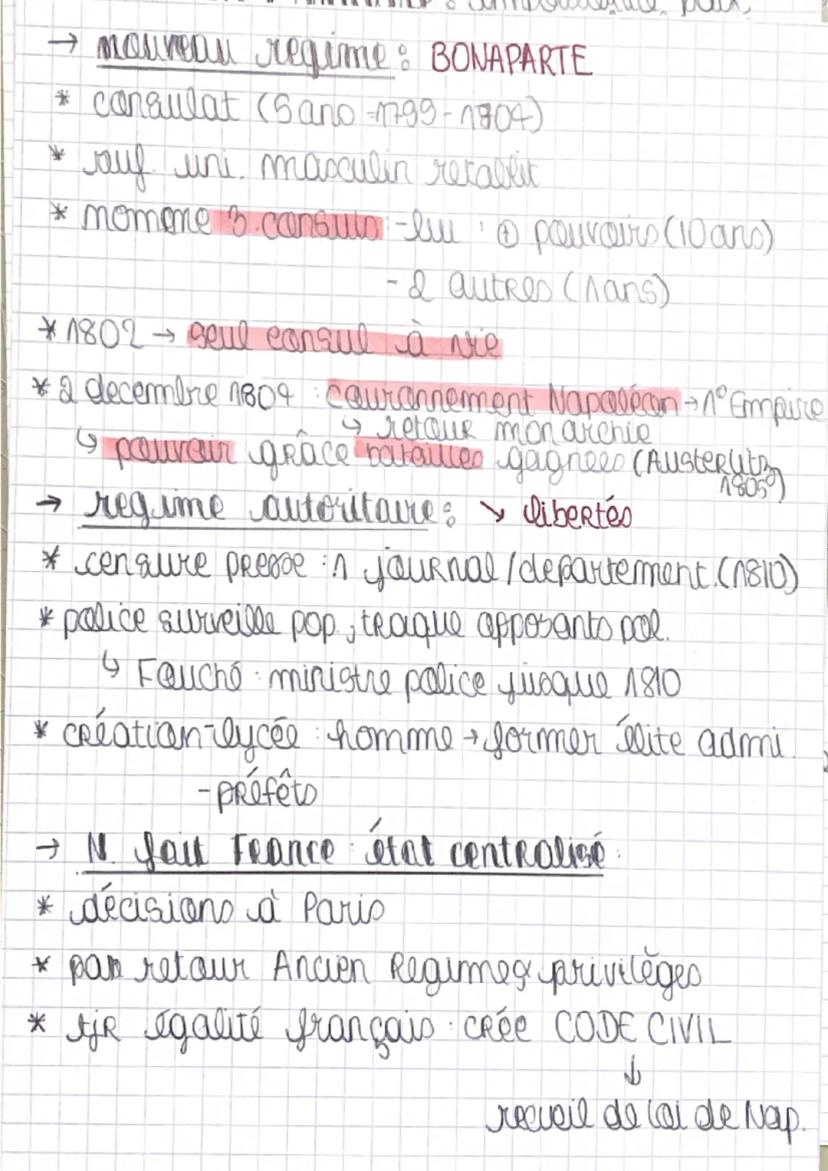 → nouveau régime : BONAPARTE
* consulat (5 ans = 1799 - 1804)
* suf. uni. masculin rétablit
* nomme 3 consuls - lui : ⊕ pouvoirs (10 ans)
- 2 autres (1 ans)
* 1802 → seul consul à vie
* 2 decembre 1804 : couronnement Napoléon → 1° Empire
↳ retour monarchie
↳ pouvoir grâce batailles gagnées (Austerlitz
1805)
→ regime autoritaire : ↘ libertés
* censure presse : 1 journal / departement. (1810)
* police surveille pop, traque opposants pol.
↳ Fouché : ministre police jusque 1810
* création - lycée : homme → former élite admi
- préfets
→ N. fait France état centralisé :
* décisions à Paris
* pas retour Ancien Regime & privilèges
* tjr égalité français : crée CODE CIVIL
↓
recueil de loi de Nap.